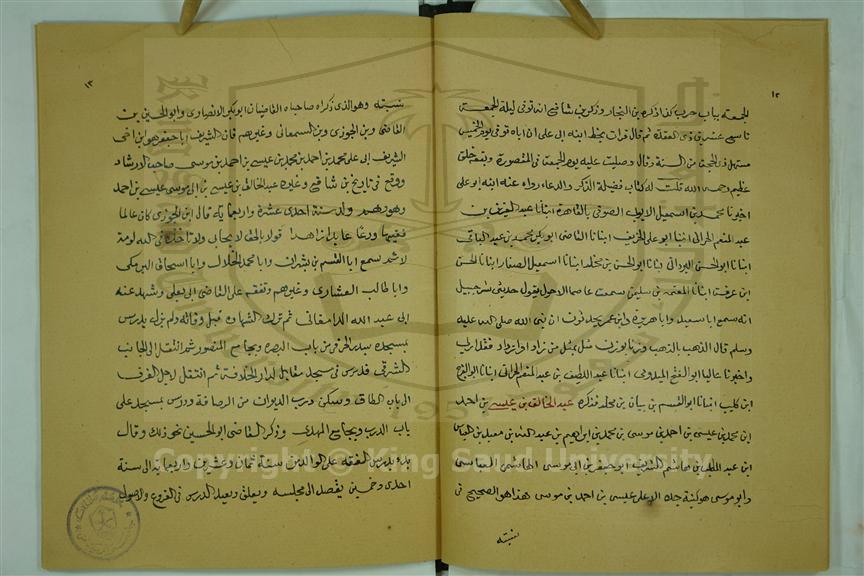 ١٢
للجمعة بباب حرب كذا ذكره بن النجار وذكر بن شافع انه توفى ليلة الجمعة
تاسع عشرين ذى القعدة ثم قال قرات بخط ابنه ابى على ان اباه توفى يوم الخميس
مستهل ذى الحجة من السنة وقال وصليت عليه يوم الجمعة فى المنصورة وتبعه خلق
عظيم رحمه الله قلت له كتاب فضيلة الذكر والدعاء رواه عنه ابنه ابو على
اخبرنا محمد بن اسمعيل الايوبى الصوفى بالقاهرة انبانا عبد العزيز بن
عبد المنعم الحرانى انبنا ابو على الخريف انبانا القاضى ابو بكر محمد بن عبد الباقى
ابنانا ابو الحسن البردانى انبانا ابو الحسن بن مخلد انبانا اسمعيل الصفار انبانا الحسن
ابن عرفة انبانا المعتمر بن سليمن سمعت عاصما الاحول يقول حدثنى شرحبيل
انه سمع ابا سعيد وابا هريرة وابن عمر يحدثون ان نبى الله صلى الله عليه
وسلم قال الذهب بالذهب وزنا بوزن مثل بمثل من زاد او ازداد فقد اربى
واخبرنا عاليا ابو الفتح الميدومى انبانا عبد اللطيف بن عبد المنعم الحرانى انبانا ابو الفرج
ابن كليب انبانا ابو القسم بن بيان بن مخلد فذكره عبد الخالق بن عيسى بن احمد
ابن محمد بن عيسى بن احمد بن موسى بن محمد بن ابراهيم بن عبد الله بن معبد بن العباس
ابن عبد المطلب بن هاشم الشريف ابو جعفر بن ابى موسى الهاشمى العباسى
وابو موسى هو كنية جده الاعلى عيسى بن احمد بن موسى هذا هو الصحيح فى
نسبته
١٣
نسبته وهو الذى ذكراه صاحباه القاضيان ابو بكر الانصارى وابو الحسين بن
القاضى وبن الجوزى وبن السمعانى وغيرهم فان الشريف ابا جعفر هو ابن اخى
الشريف ابى على محمد بن احمد بن محمد بن عيسى بن احمد بن موسى صاحب الارشاد
ووقع فى تاريخ بن شافع وغيره عبد الخالق بن عيسى بن ابى موسى عيسى بن احمد
وهو وهم ولد سنة احدى عشرة واربعماية قال ابن الجوزى كان عالما
فقيها ورعا عابدا زاهدا قولا بالحق لا يحابى ولا تاخذه فى الله لومة
لائم سمع ابا القسم بن بشران وابا محمد الخلال وابا اسحاق البرمكى
وابا طالب العشارى وغيرهم وتفقه على القاضى ابى يعلى وشهد عنه
ابى عبد الله الدامغانى ثم ترك الشهادة قبل وفاته ولم يزل يدرس
بمسجده بباب البصره وبجامع المنصور ثم انتقل الى الجانب
الشرقى فدرس فى مسجد مقابل لدار الخلافة ثم انتقل لاجل الغرق
الى باب الطاق وسكن درب الديوان من الرصافة ودرس بمسجد على
باب الدرب وبجامع المهدى وذكر القاضى ابو الحسين نحو ذلك وقال
بدا بدرس الفقه على الوالد من سنة ثمان وعشرين واربعماية الى سنة
احدى وخمسين يقصد الى مجلسه ويعلق ويعيد الدرس فى الفروع والاصول
Copyright © King Saud University
1957